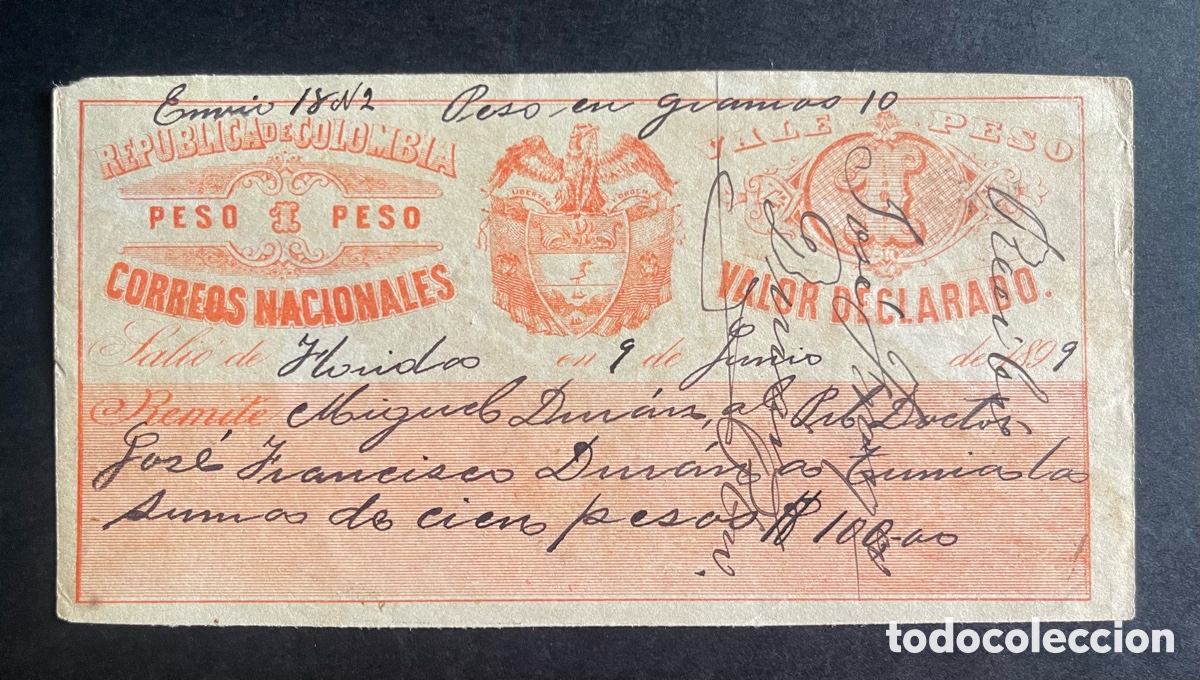 Envio 18 N2 Peso en gramos 10
REPUBLICA DE COLOMBIA
PESO 1 PESO
CORREOS NACIONALES
LIBERTAD Y ORDEN
VALE 1 PESO
VALOR DECLARADO.
Salió de Honda en 9 de Junio de 1899
Remite Miguel Durán, al Pbt Doctor
José Francisco Durán a Tunja la
suma de cien pesos $ 100-00
Recibí
José Franco
todocoleccion